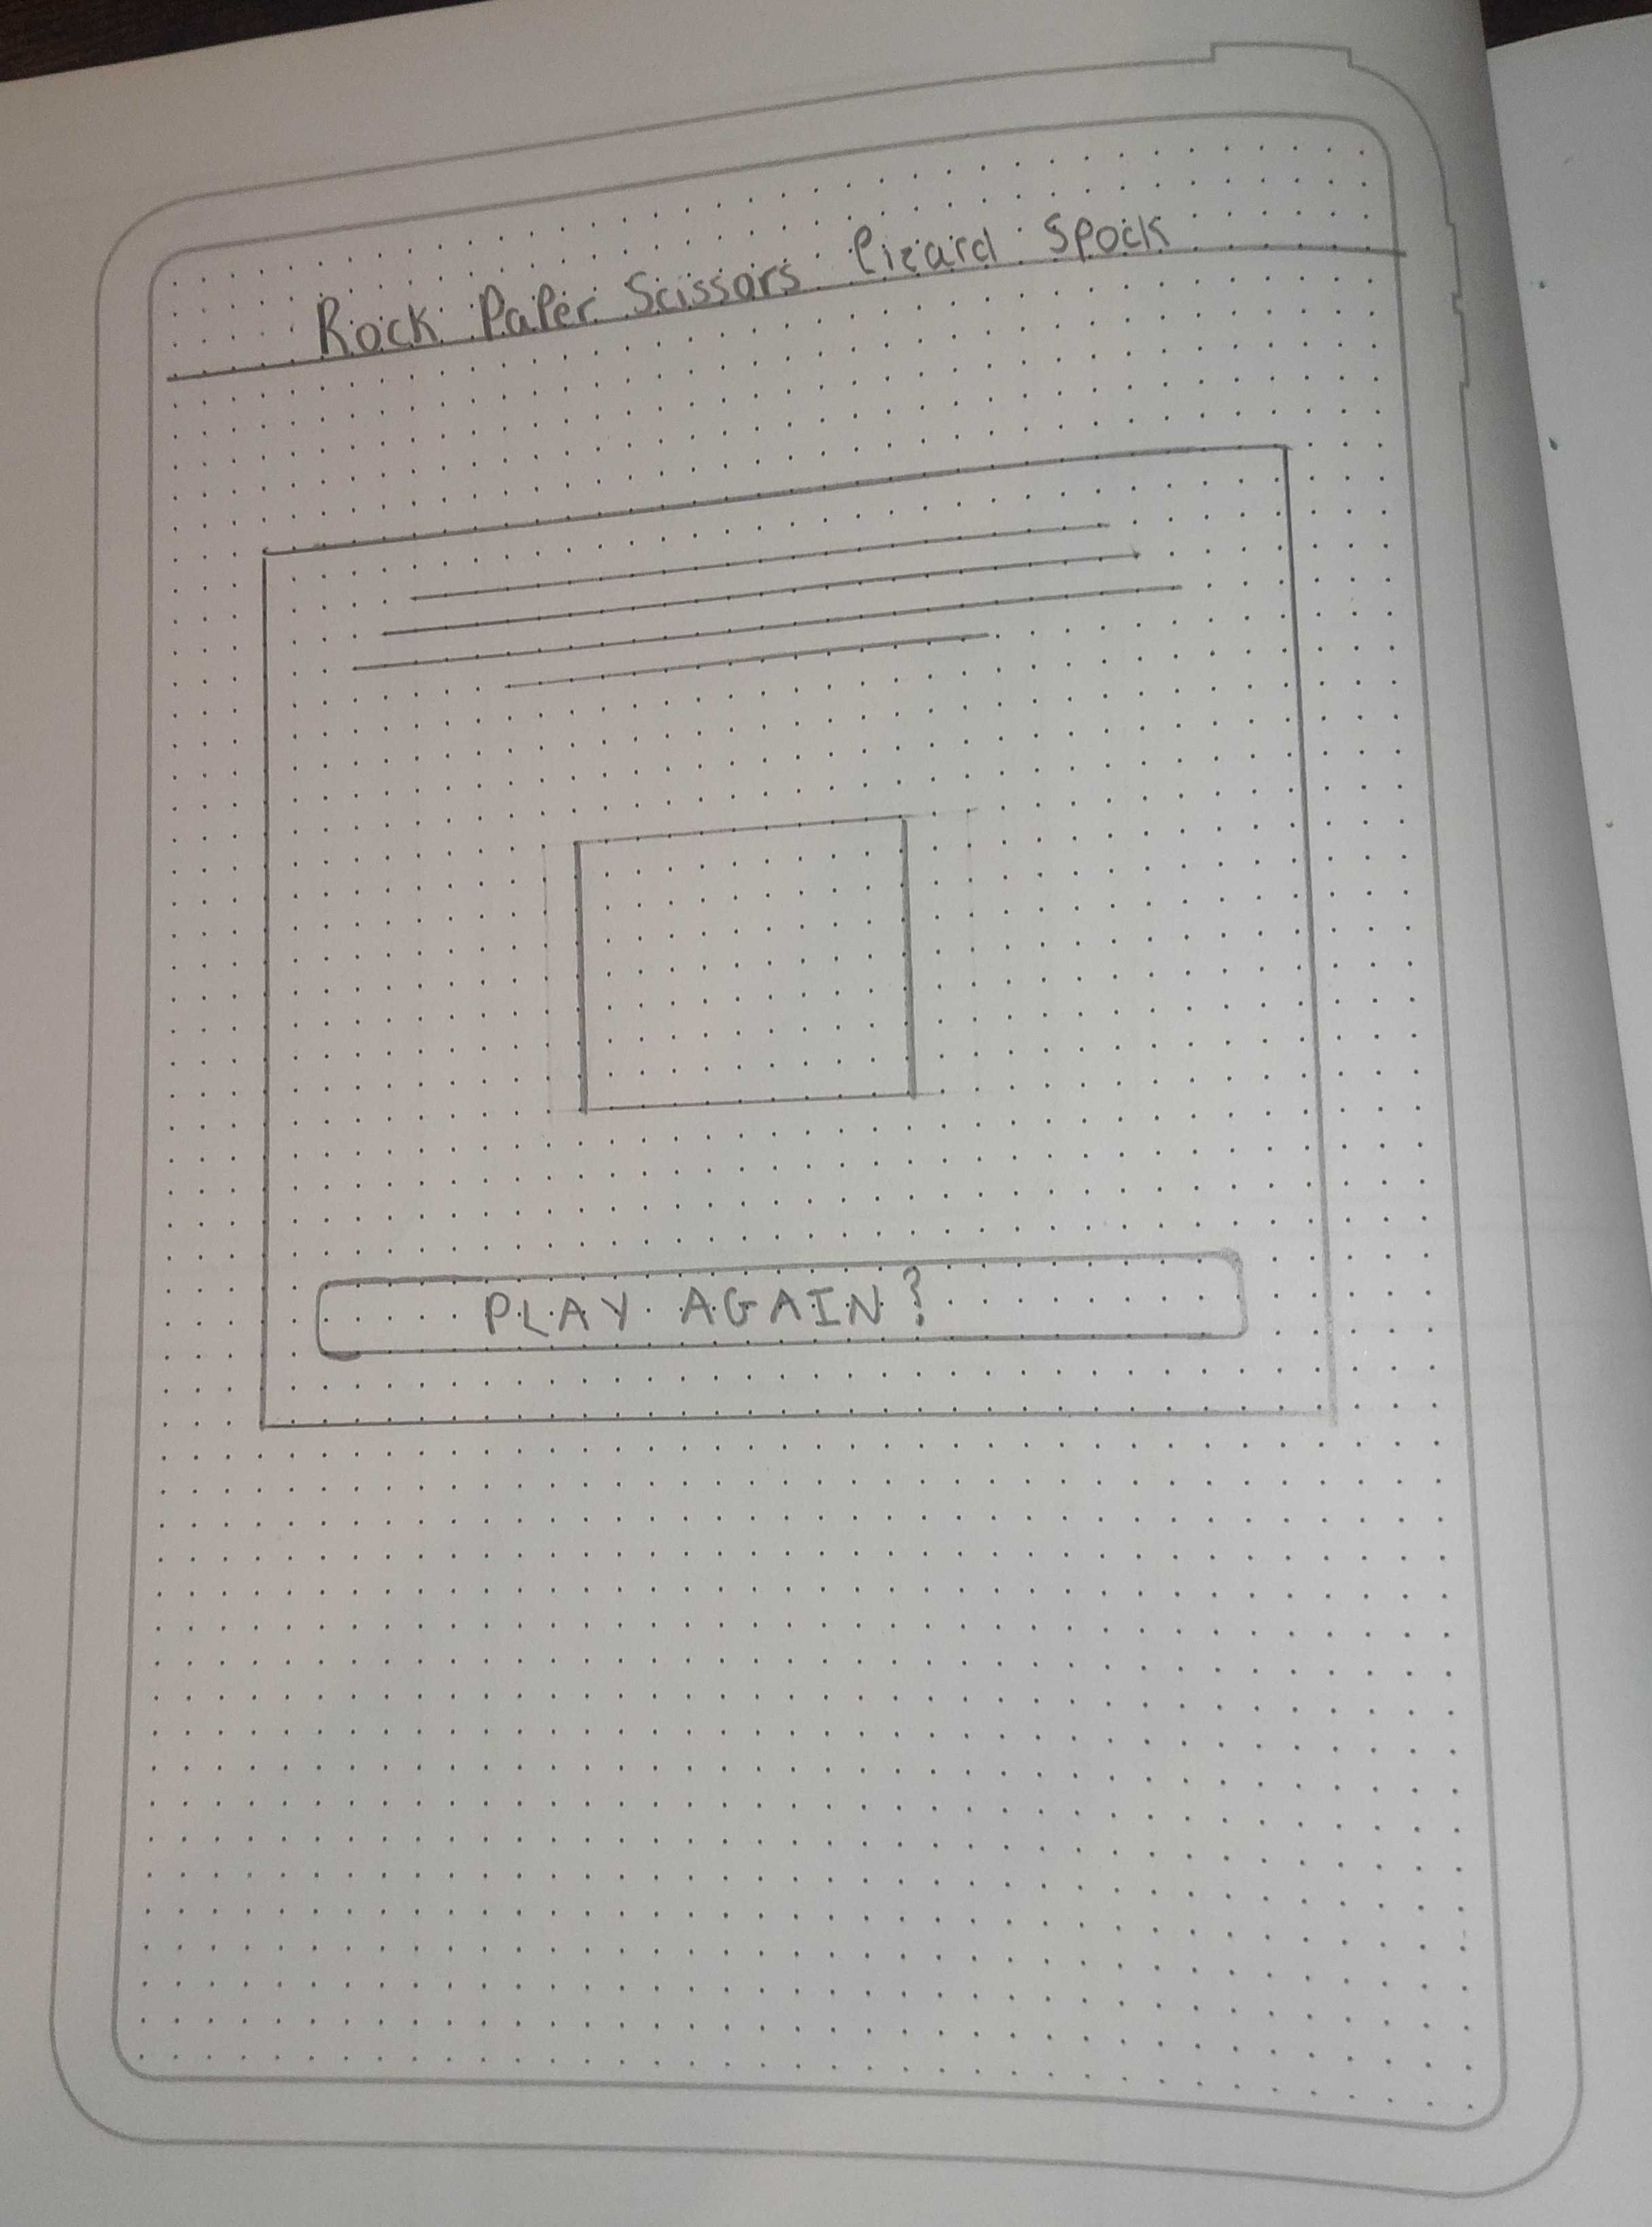 Rock Paper Scissors lizard Spock
PLAY AGAIN?